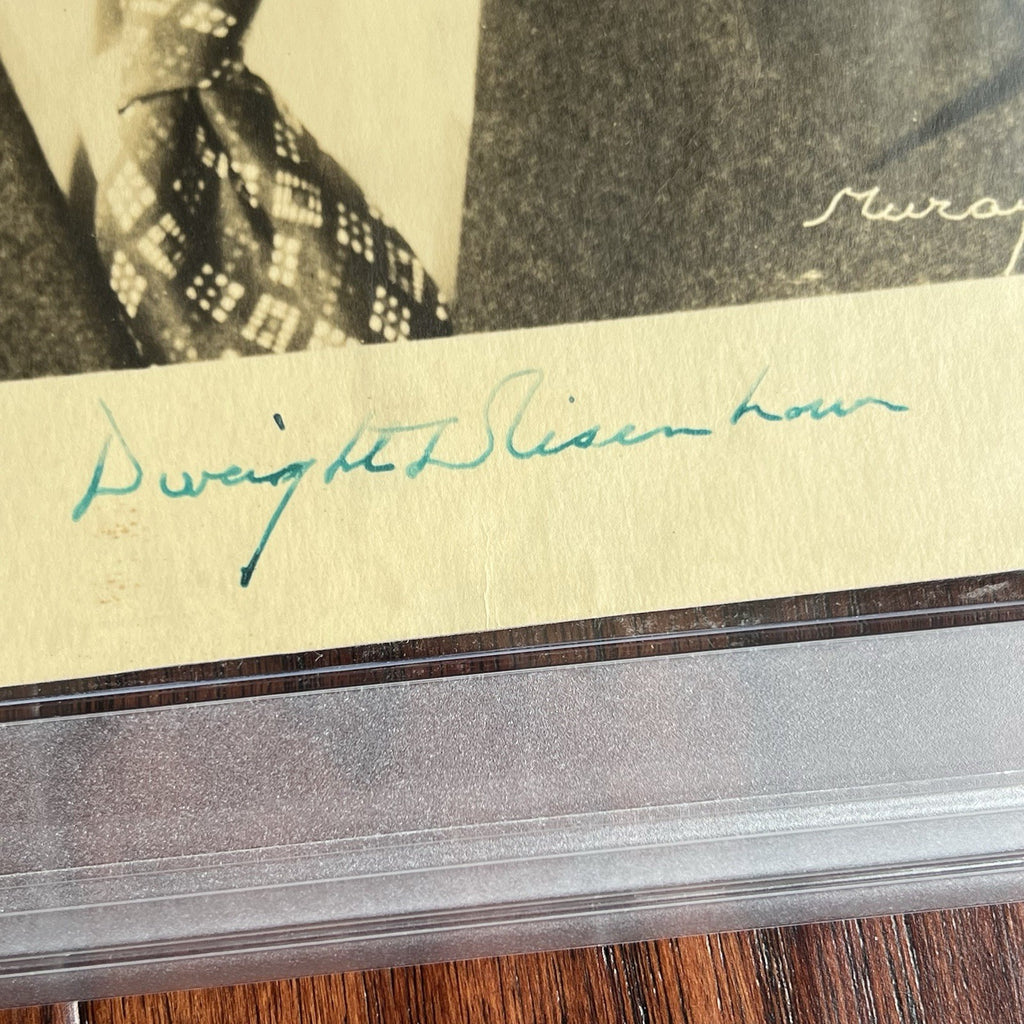 Muray
Dwight D Eisenhower